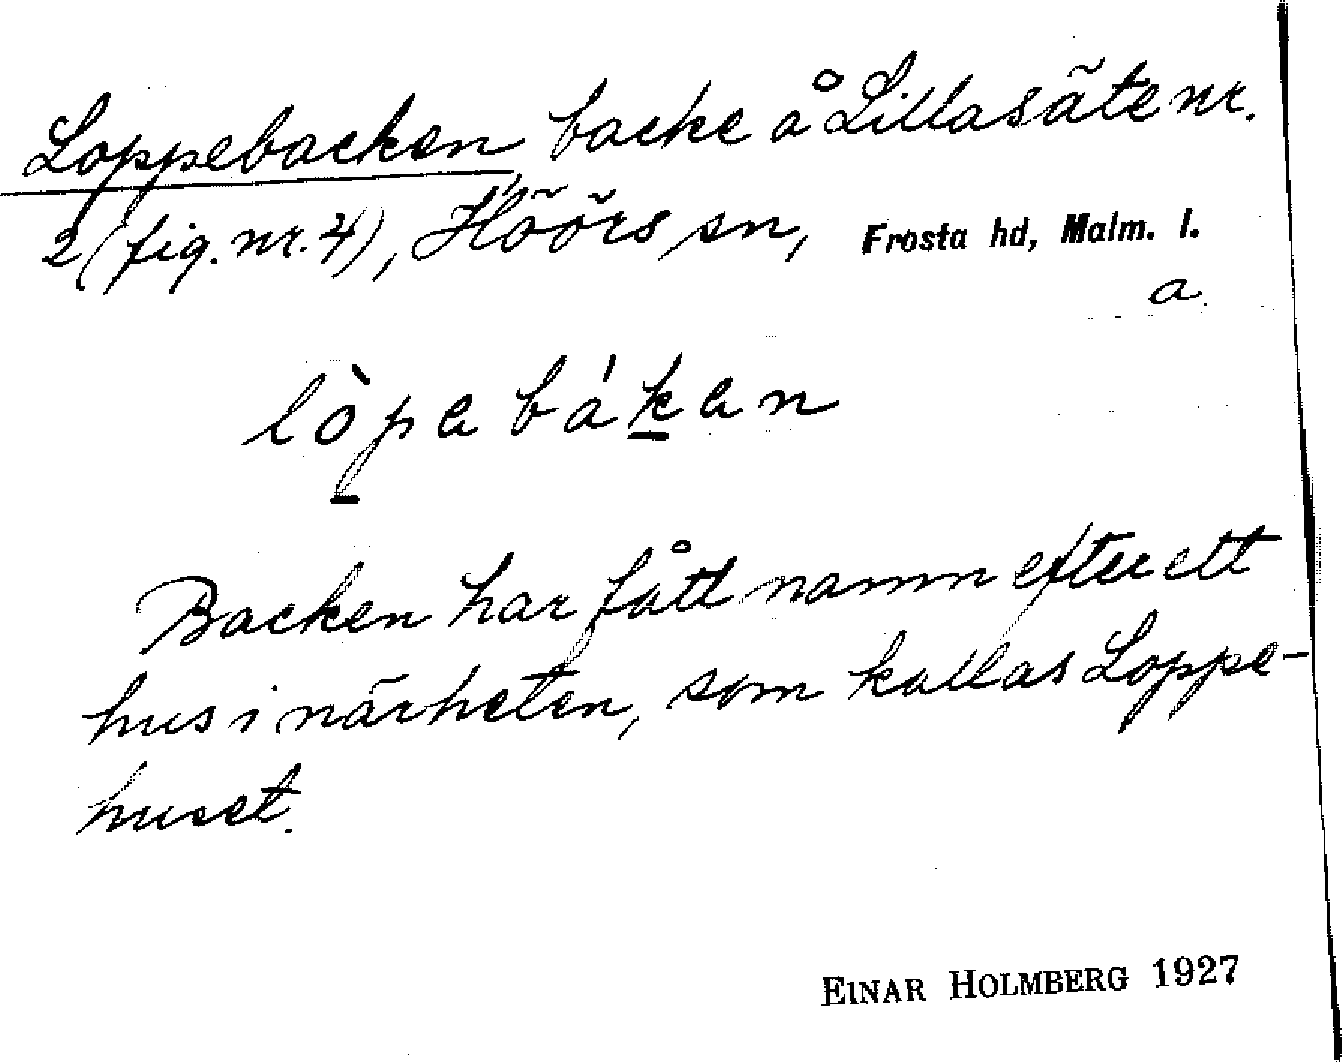 Loppebacken, backe å Lillasäte nr.
2 (fig. nr. 4), Höörs sn, Frosta hd, Malm. l.
a.
lòpebákan
Backen har fått namn efter ett
hus i närheten, som kallas Loppe-
huset.
EINAR HOLMBERG 1927